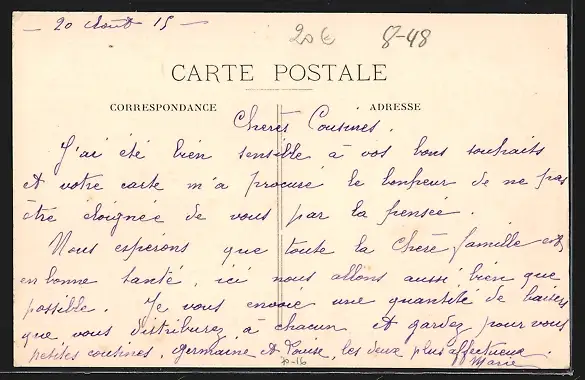 — 20 Août 15 —
20€ 8-48
CARTE POSTALE
CORRESPONDANCE ADRESSE
Chères Cousines.
J'ai été bien sensible à vos bons souhaits
et votre carte m'a procuré le bonheur de ne pas
être éloignée de vous par la pensée.
Nous espérons que toute la chère famille est
en bonne santé, ici nous allons aussi bien que
possible. Je vous envoie une quantité de baisers
que vous distribuez à chacun et gardez pour vous
petites cousines, Germaine et Louise, les deux plus affectueux.
Marie